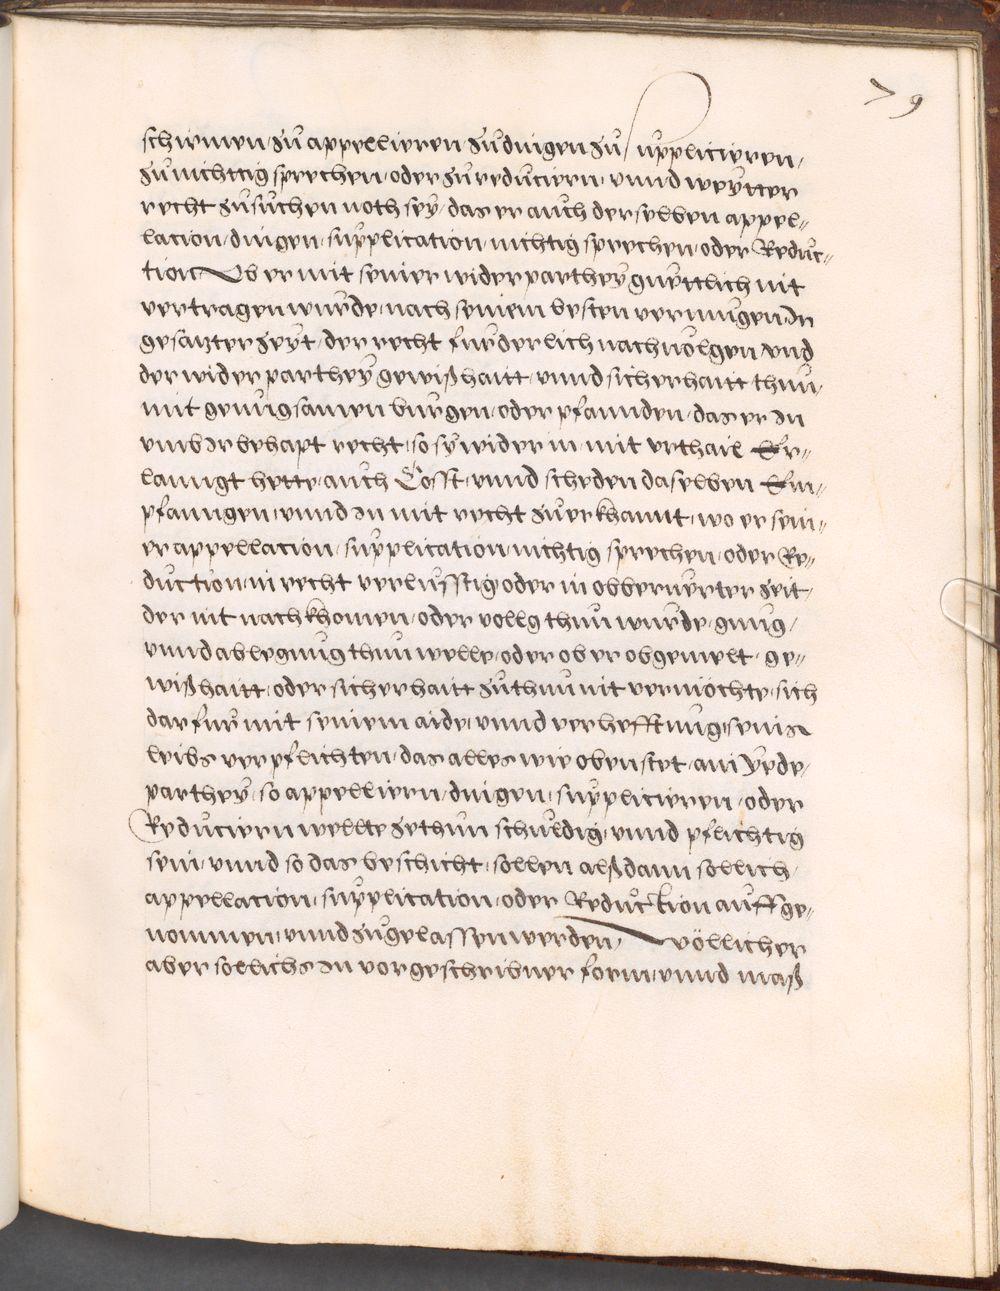 79
schirmen, zu appellieren zu dingen zu supplicieren,
zu nichttig sprechen, oder zu reduciern, vnnd weÿtter
recht zu suchen noth seÿ, das er auch derselben appel=
lacion, dingen, supplication, nichtig sprechen, oder Reduc=
tion Ob er mit seiner widerpartheÿ guettlich nit
vertragen wurde, nach seinem besten vermugen, In
gesatzter zeÿt, der recht furderlich nachuolgen vnd
der widerparthey gewißhaitt, vnnd sicherhaitt thuu,
mit genuugsamen burgen, oder pfannden, das er In
vmb Ir behapt recht, so sÿ wider in, mit vrthail Er=
lanngt hette, auch Cosst, vnnd scheden daselben Em=
pfanngen, vnnd In mit recht zuerkhannt, wo er sein=
er appellacion, supplication, nichtig sprechen, oder Re=
duction, in recht verlusstig oder in obberuerter zeit,
der nit nachkhomen, oder vollg thun wurde, gnug,
vnnd ablegnug thun welle, oder ob er obgemelt, ge=
wißhaitt, oder sicherhaitt zuthun nit vermöchte, sich
darfur mit seinem aide, vnnd verhefftnug, seins
leibs verpflichten, das alles wie oben stet, ain Yede,
parthey, so appelliern, dingen, supplicieren, oder
Reduciern wellte zethun schuldig, vnnd pflichtig
sein, vnnd so das beschicht, sollen alßdann sollich,
appellacion, supplication, oder Reducktion auffge=
nommen, vnnd zugelassen werden, völlicher
aber sollichs In vorgeschribner form, vnnd maß